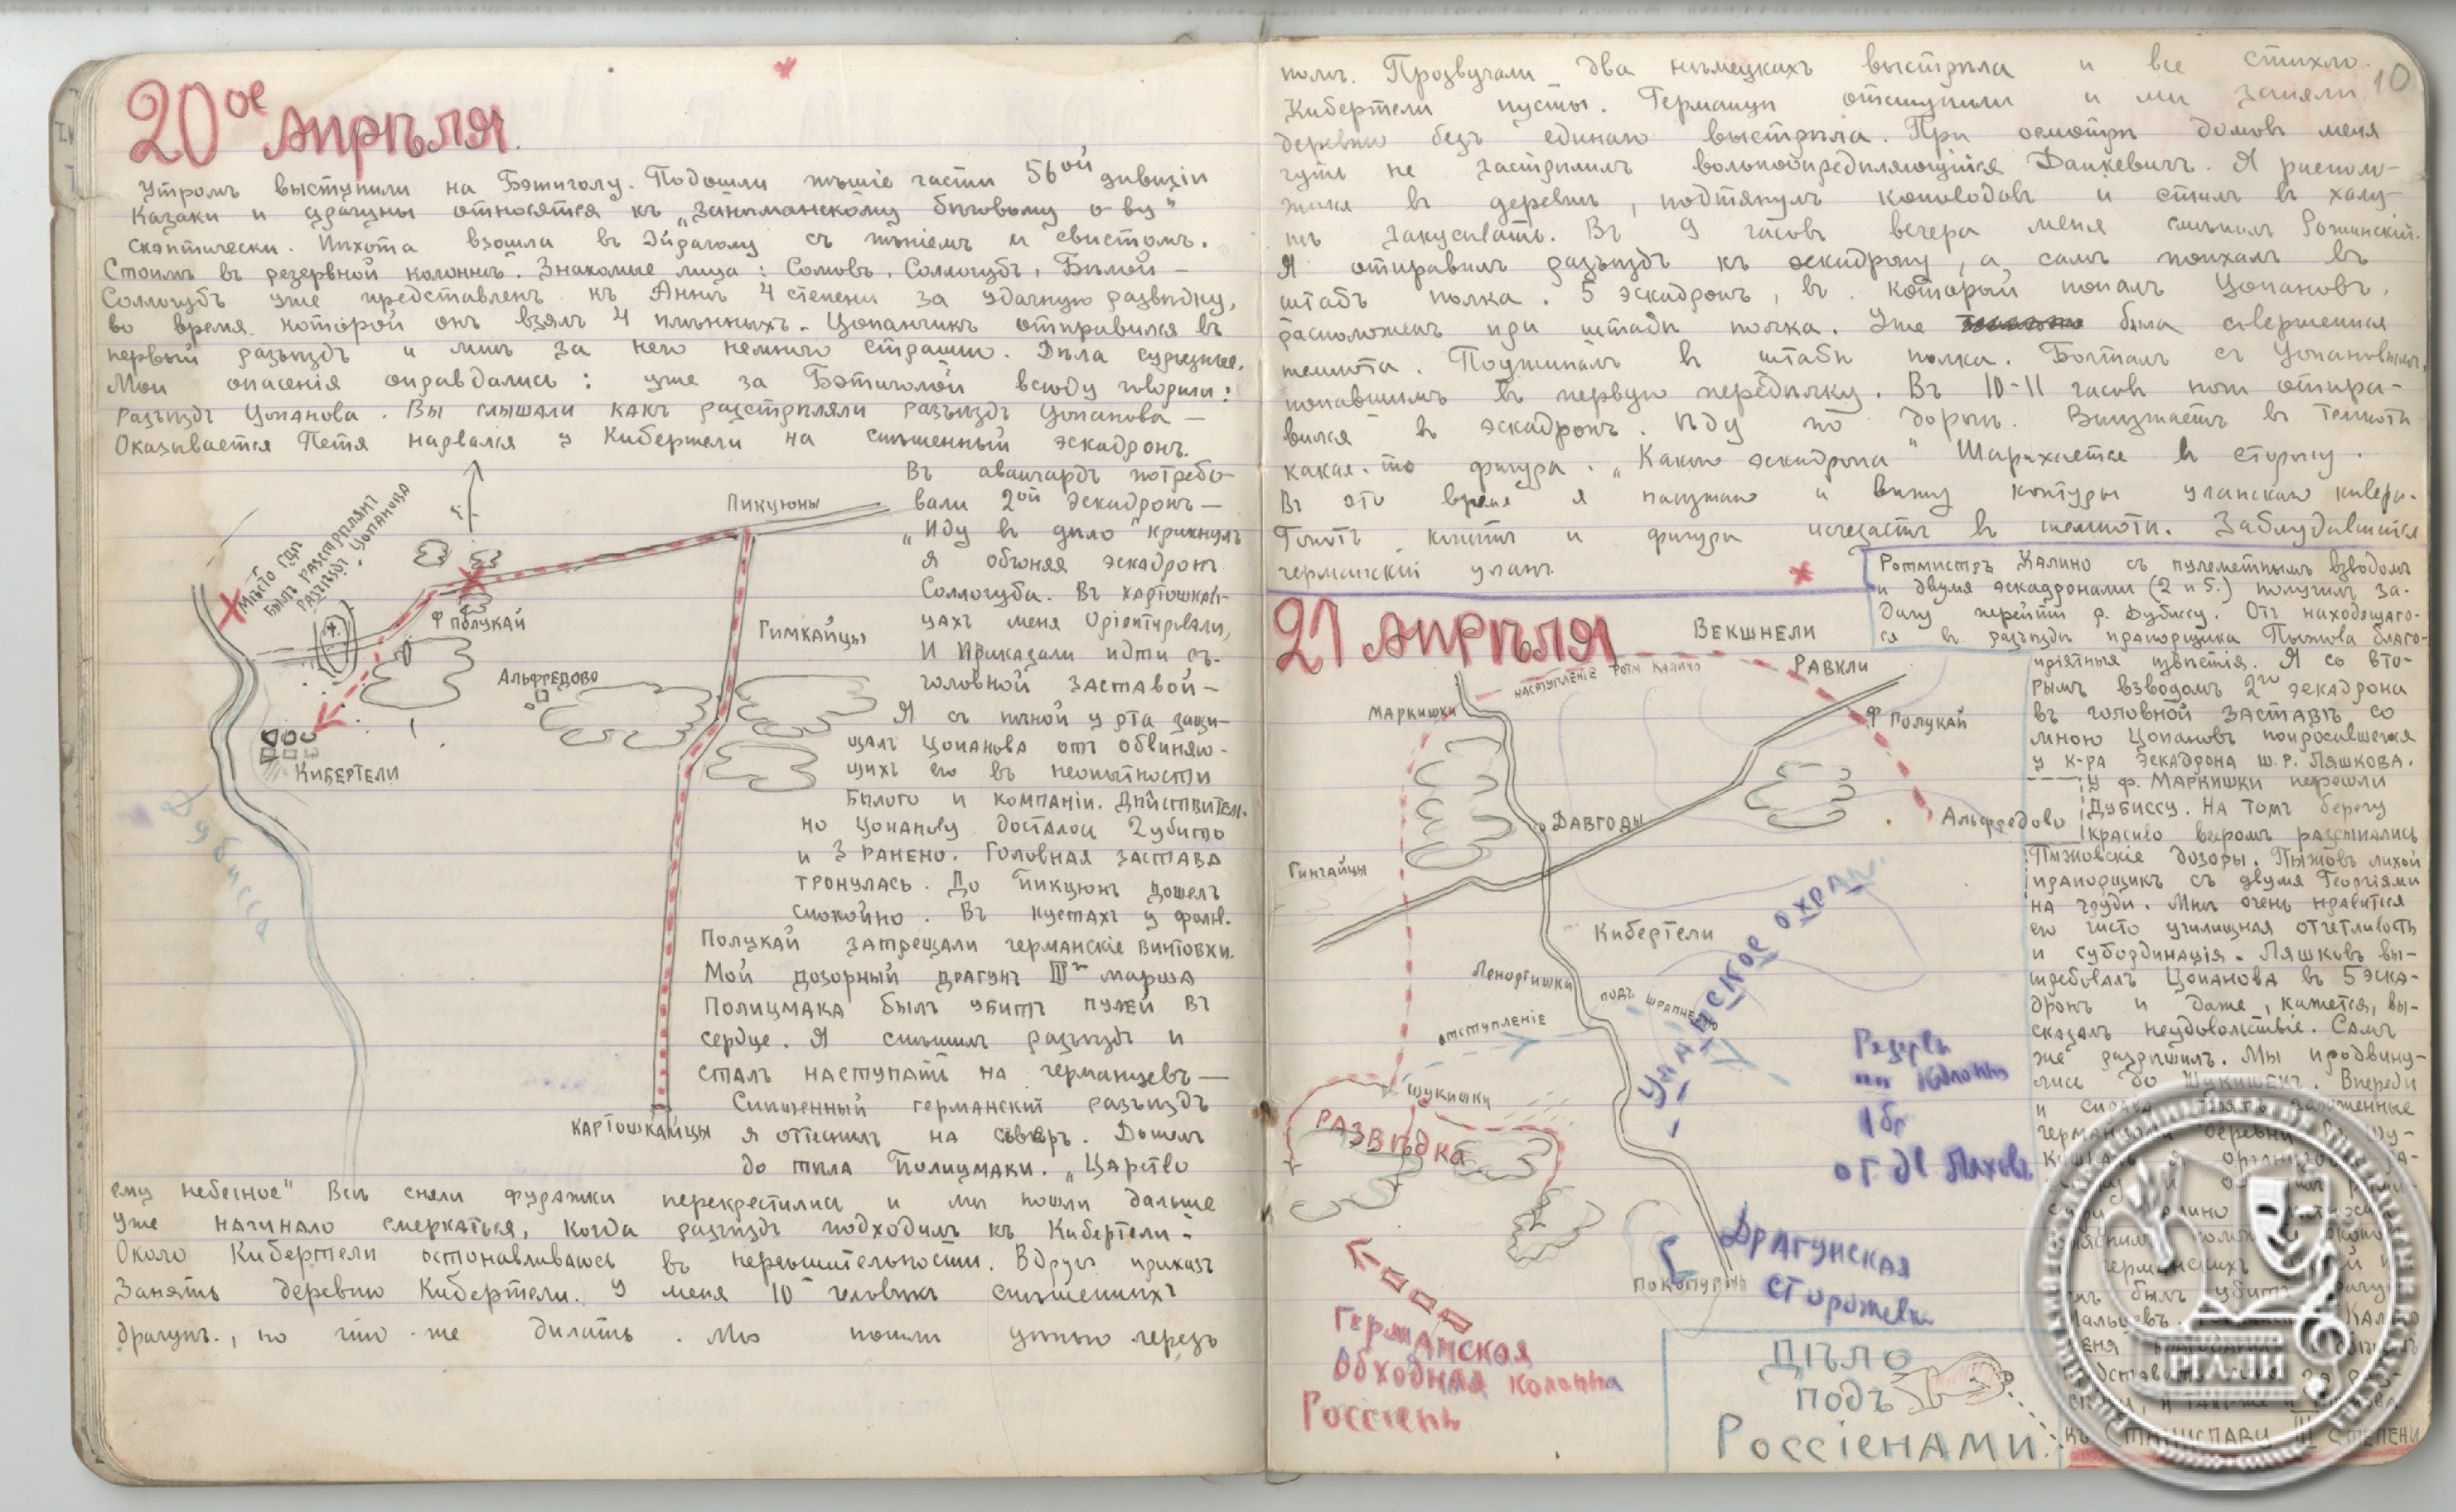 20ое Апрѣля.
Утромъ выступили на Бэтиголу. Подошли пѣшіе части 56ой дивизіи
Казаки и драгуны относятся къ „Занѣманскому бѣговому о-ву"
скэптически. Пѣхота взошла въ Эйраголу съ пѣніемъ и свистомъ.
Стоимъ въ резервной колоннѣ. Знакомые лица: Сомовъ, Соллогубъ, Бѣлой —
Соллогубъ уже представленъ къ Аннѣ 4 степени за удачную развѣдку,
во время которой онъ взялъ 4 плѣнныхъ. Цопанчикъ отправился въ
первый разъѣздъ и мнѣ за него немного страшно. Дѣла сурьезные.
Мои опасенія оправдались: уже за Бэтиголой всюду говорили:
разъѣздъ Цопанова. Вы слышали какъ разстрѣляли разъѣздъ Цопанова —
Оказывается Петя нарвался у Кибертели на спѣшенный эскадронъ.
Въ авангардъ потребо-
вали 2ой эскадронъ —
„Иду въ дѣло" крикнулъ
я обгоняя эскадронъ
Соллогуба. Въ Картошкай-
цахъ меня оріентировали,
И приказали идти съ
головной заставой —
Я съ пѣной у рта защи-
щалъ Цопанова отъ обвиняю-
щихъ его въ неопытности
Бѣлого и компаніи. Дѣйствитель-
но Цопанову досталось 2 убито
и 3 ранено. Головная застава
тронулась. До Пикцюнъ дошелъ
спокойно. Въ кустахъ у фолв.
Полукай затрещали германскіе винтовки.
Мой дозорный драгунъ III го марша
Полицмака былъ убитъ пулей въ
сердце. Я спѣшилъ разъѣздъ и
сталъ наступать на германцевъ —
Спѣшенный германскій разъѣздъ
я оттѣснилъ на сѣверъ. Дошелъ
до тѣла Полицмаки. „Царство
ему небесное" Всѣ сняли фуражки перекрестились и мы пошли дальше
Уже начинало смеркаться, когда разъѣздъ подходилъ къ Кибертели —
Около Кибертели останавливаюсь въ нерѣшительности. Вдругъ приказъ
Занять деревню Кибертели. У меня 10 человѣкъ спѣшенныхъ
драгунъ, но что-же дѣлать. Мы пошли цѣпью черезъ
Мѣсто гдѣ
былъ разстрѣлянъ
разъѣздъ Цопанова
Пикцюны
Ф Полукай
Гимкайцы
Альфредово
Кибертели
Дубисса
Картошкайцы
10
поле. Прозвучали два нѣмецкихъ выстрѣла и все стихло.
Кибертели пусты. Германцы отступили и мы заняли
деревню безъ единаго выстрѣла. При осмотрѣ домовъ меня
чуть не застрѣлилъ вольноопредѣляющійся Данкевичъ. Я располо-
жился въ деревнѣ, подтянулъ коноводовъ и сталъ въ халу-
пѣ закусывать. Въ 9 часовъ вечера меня смѣнилъ Рожинскій.
Я отправилъ разъѣздъ къ эскадрону, а самъ поѣхалъ въ
штабъ полка. 5 эскадронъ, въ который попалъ Цопановъ,
расположенъ при штабѣ полка. Уже была совершенная
темнота. Поужиналъ въ штабѣ полка. Болталъ съ Цопановымъ,
попавшимъ въ первую передѣлку. Въ 10-11 часовъ ночи отпра-
вился въ эскадронъ. ѣду по дорогѣ. Выѣзжаетъ въ темнотѣ
какая-то фигура. „Какого эскадрона" Шарахается въ сторону.
Въ это время я наѣзжаю и вижу контуры уланскаго кивера.
Топотъ копытъ и фигура исчезаетъ въ темнотѣ. Заблудившійся
германскій уланъ.
21 Апрѣля
Ротмистръ Калино съ пулеметнымъ взводомъ
и двумя эскадронами (2 и 5.) получилъ за-
дачу перейти р. Дубиссу. Отъ находящаго-
ся въ разъѣздѣ прапорщика Пыжова благо-
пріятныя извѣстія. Я со вто-
рымъ взводомъ 2го эскадрона
въ головной заставѣ со
мною Цопановъ попросившейся
у к-ра эскадрона ш.р. Ляшкова.
У ф. Маркишки перешли
Дубиссу. На томъ берегу
красиво вѣеромъ разсыпались
Пыжовскіе дозоры. Пыжовъ лихой
прапорщикъ съ двумя Георгіями
на груди. Мнѣ очень нравится
его чисто училищная отчетливость
и субординація. Ляшковъ вы-
требовалъ Цопанова въ 5 эска-
дронъ и даже, кажется, вы-
сказалъ неудовольствіе. Самъ
же разрѣшилъ. Мы продвину-
лись до Шукишекъ. Впереди
былъ убитъ
Мальцевъ.
къ Станиславу III степени
Векшнели
Равкли
наступленіе ротм. Калино
Маркишки
Ф Полукай
Давгоды
Альфредово
Гинчайцы
Кибертели
Уланское охран.
Ленортишки
подъ шрапнелью
отступленіе
Шукишки
Развѣдка
Резервн
колонна
1 бг
Драгунская
сторожевка
Германская
обходная колонна
Россіень
Дѣло
подъ
Россіенами.
РГАЛИ